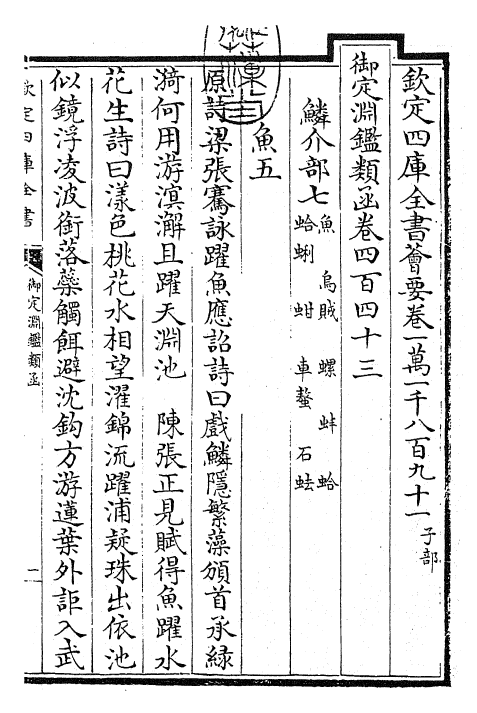 欽定四庫全書薈要卷一萬一千八百九十一 子部
御定淵鑑類函卷四百四十三
鱗介部七 魚 烏賊 螺 蚌 蛤
蛤蜊 蚶 車螯 石蛙
魚五
原詩梁張騫詠躍魚應詔詩曰戲鱗隱繁藻頒首承綠
漪何用游溟澥且躍天淵池 陳張正見賦得魚躍水
花生詩曰漾色桃花水相望濯錦流躍浦疑珠出依池
似鏡浮凌波銜落蘂觸餌避沈鈎方游蓮葉外詎入武
欽定四庫全書
御定淵鑑類函
一